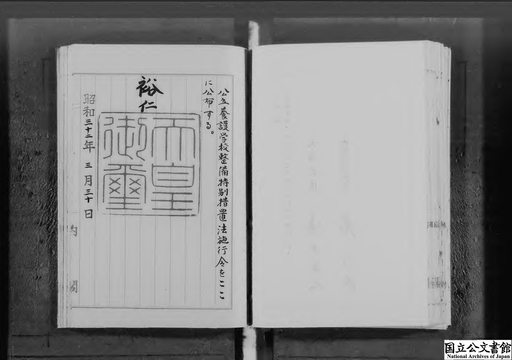 公立養護学校整備特別措置法施行令をここ
に公布する。
裕仁
天皇御璽
昭和三十二年三月三十日
内閣
国立公文書館
National Archives of Japan